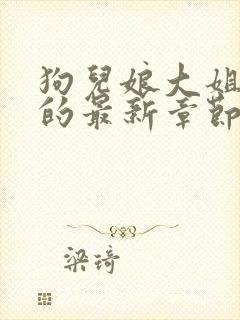 狗兒娘大姐
的最新章節
梁琦